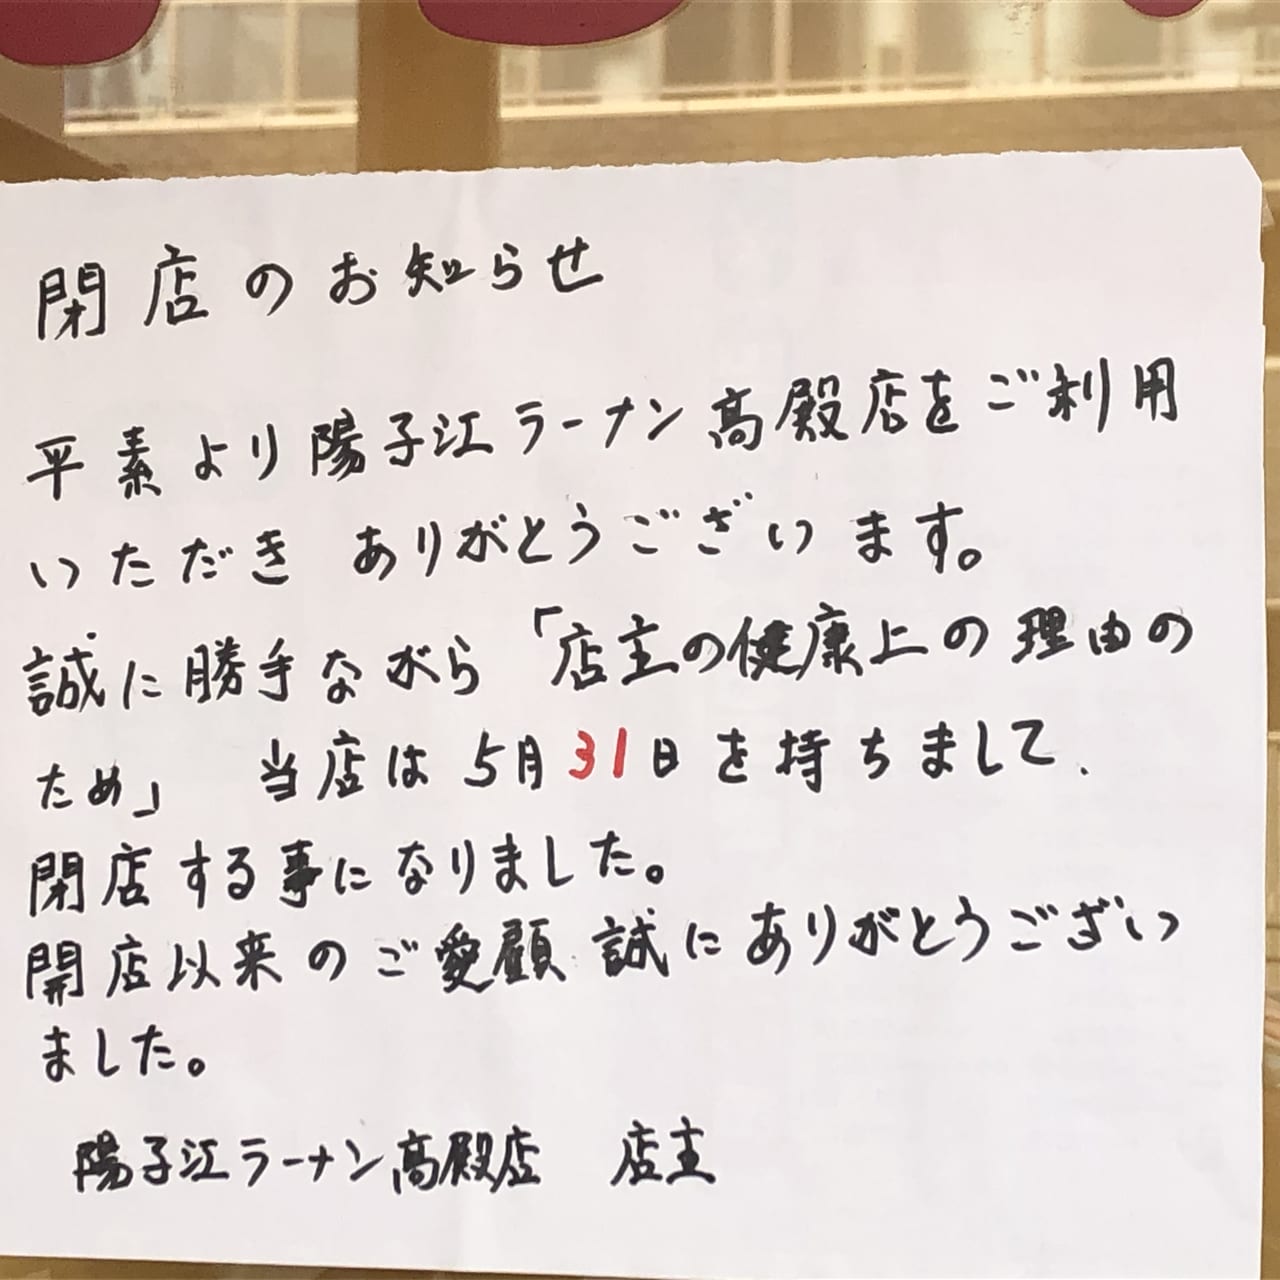 閉店のお知らせ
平素より陽子江ラーナン高殿店をご利用
いただき ありがとうございます。
誠に勝手ながら「店主の健康上の理由の
ため」 当店は5月31日を持ちまして、
閉店する事になりました。
開店以来のご愛顧 誠にありがとうござい
ました。
陽子江ラーナン高殿店 店主